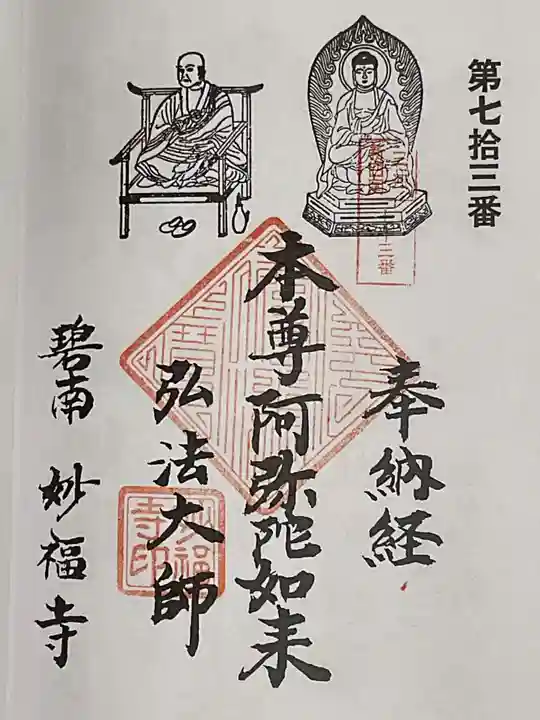 第七拾三番
奉納経
本尊阿弥陀如来
弘法大師
碧南 妙福寺
三番
妙福寺印